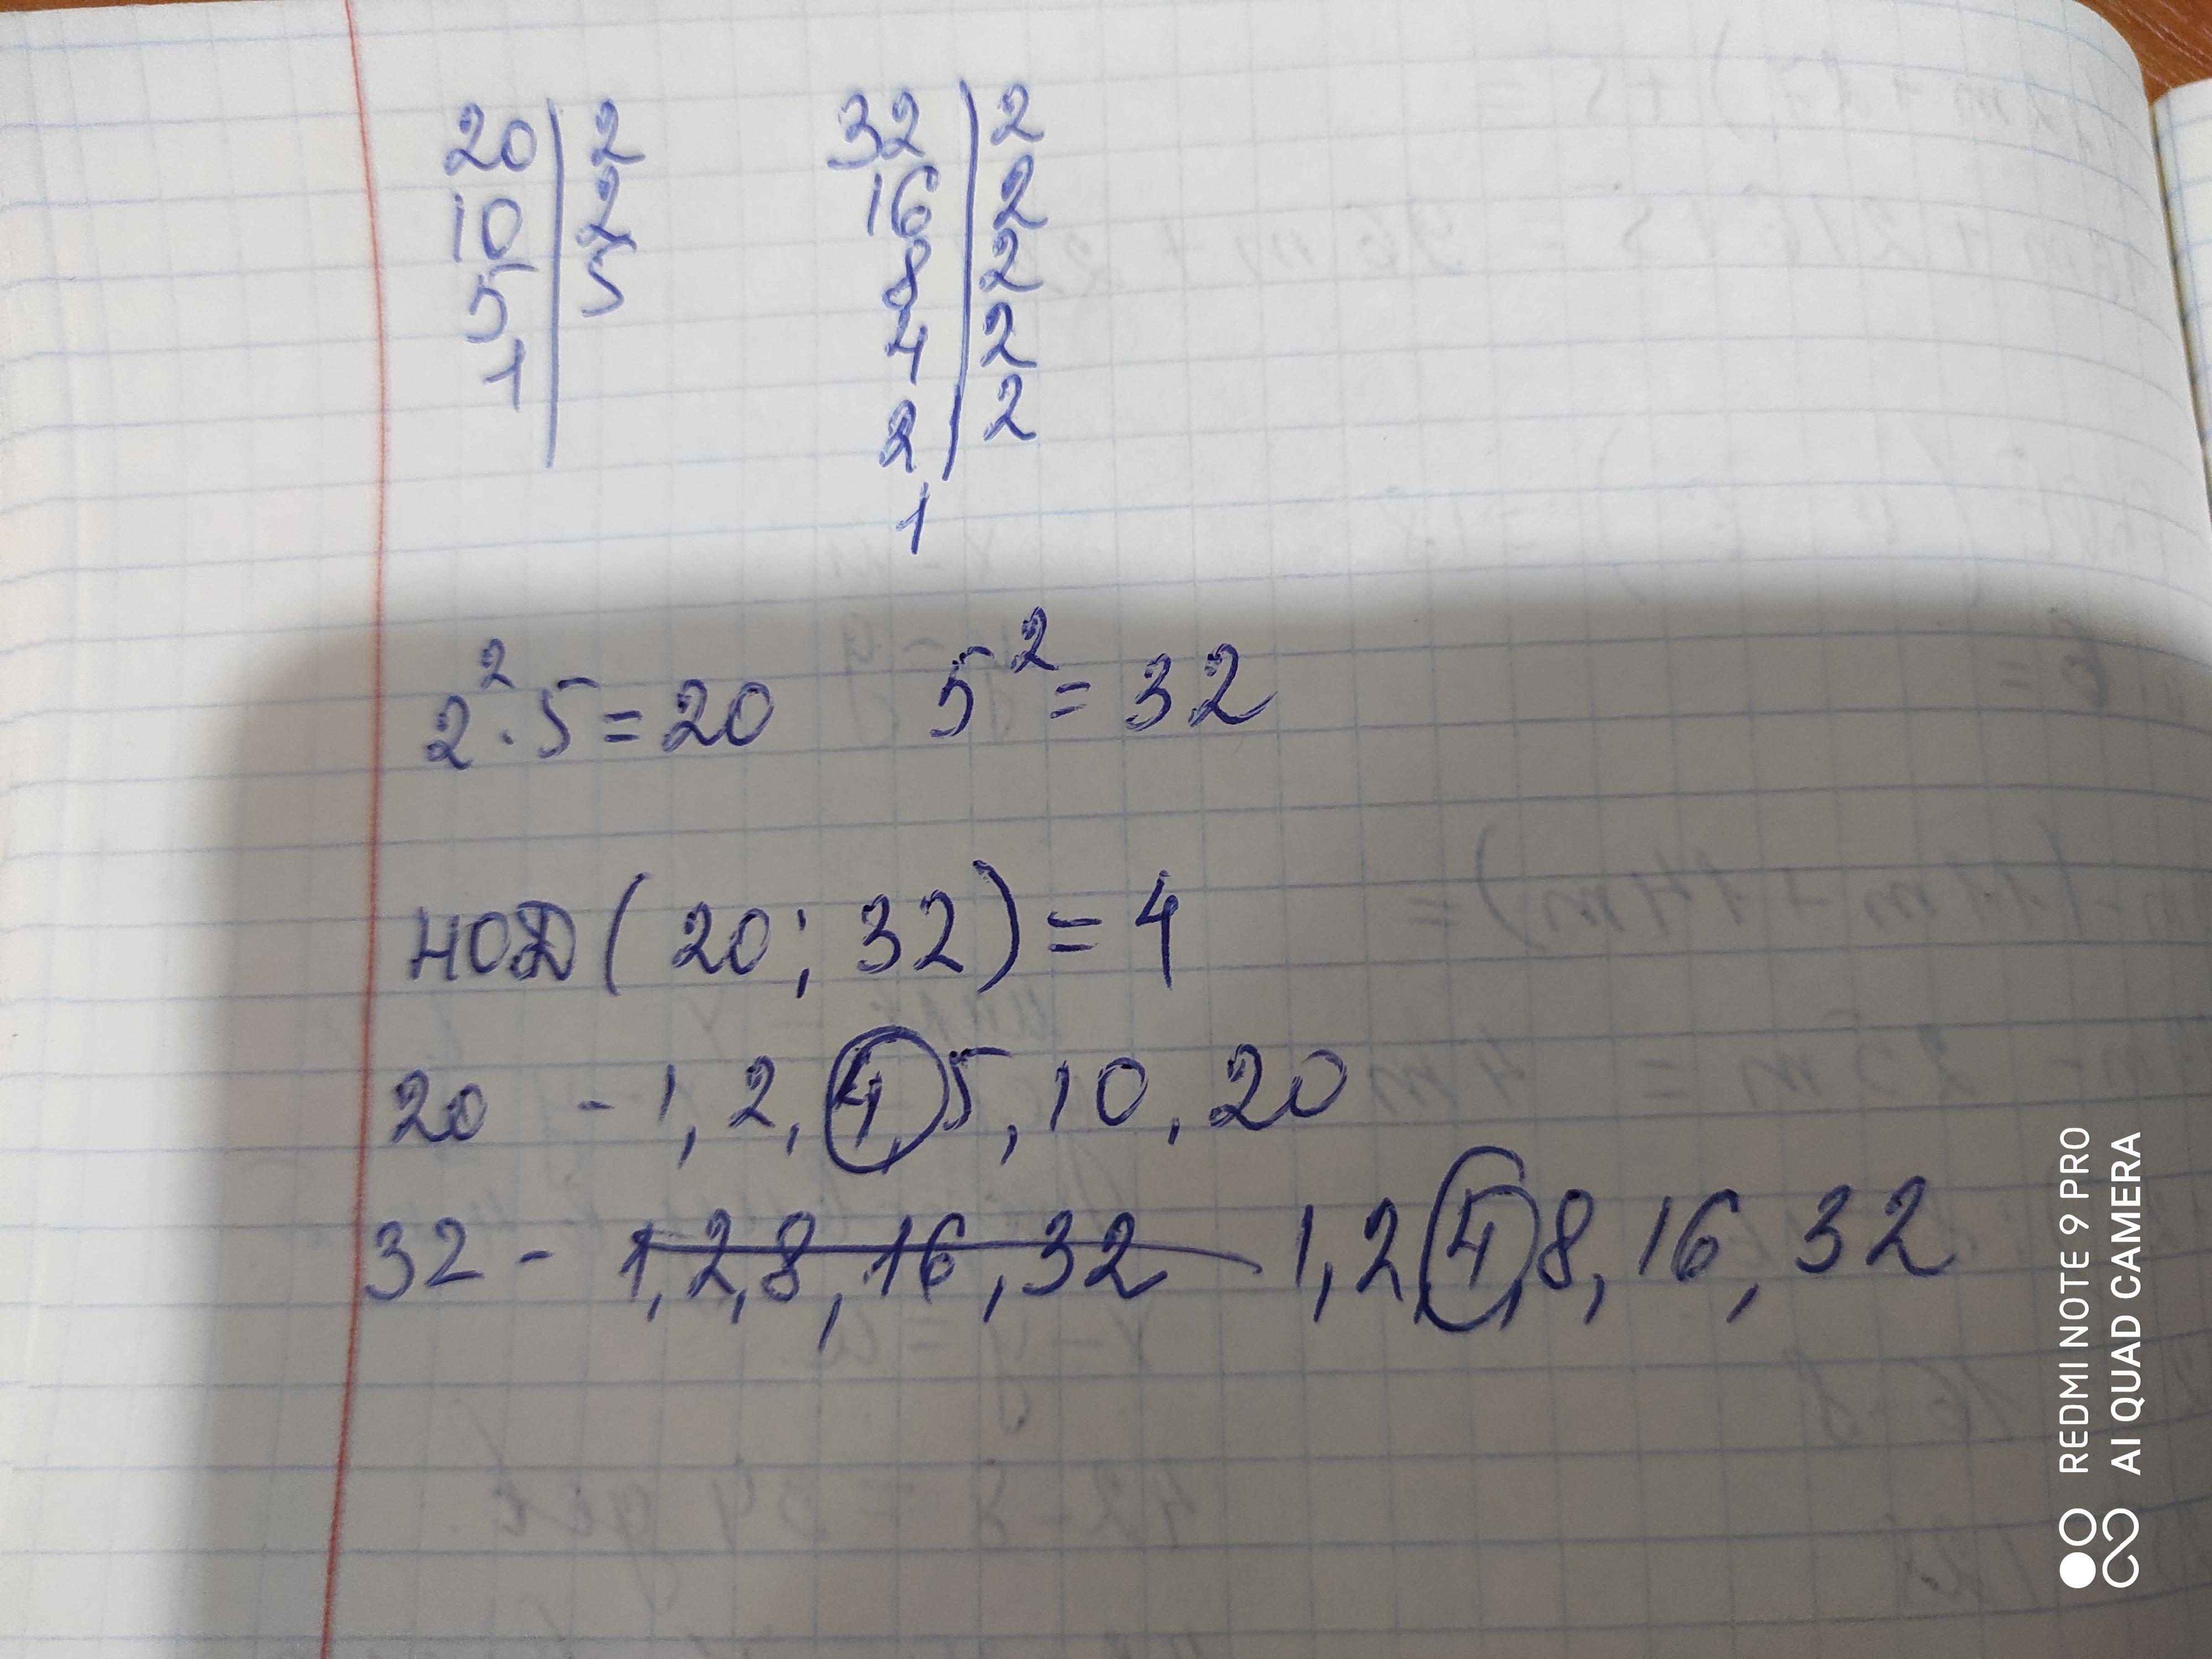 20 | 2   32 | 2
10 | 2   16 | 2
5 | 5   8 | 2
1 |   4 | 2
2 | 2
1
2² · 5 = 20   5² = 32
НОД ( 20 ; 32 ) = 4
20 - 1, 2, 4, 5, 10, 20
32 - 1, 2, 8, 16, 32 1, 2, 4, 8, 16, 32
REDMI NOTE 9 PRO
AI QUAD CAMERA